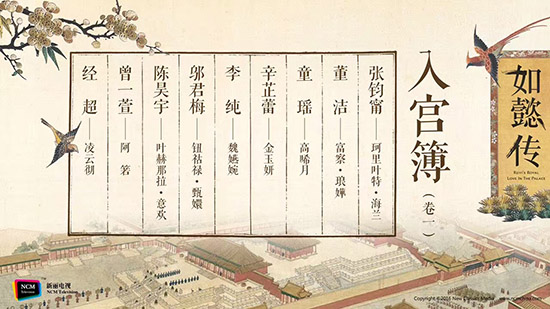 如懿传
RUYI'S ROYAL
LOVE IN THE PALACE
入宫簿（卷一）
张钧甯——珂里叶特·海兰
董洁——富察·琅嬅
童瑶——高晞月
辛芷蕾——金玉妍
李纯——魏嬿婉
邬君梅——钮祜禄·甄嬛
陈昊宇——叶赫那拉·意欢
曾一萱——阿箬
经超——凌云彻
NCM
Television
新丽电视
NCM Television
Copyright ©2016 New Classics Media